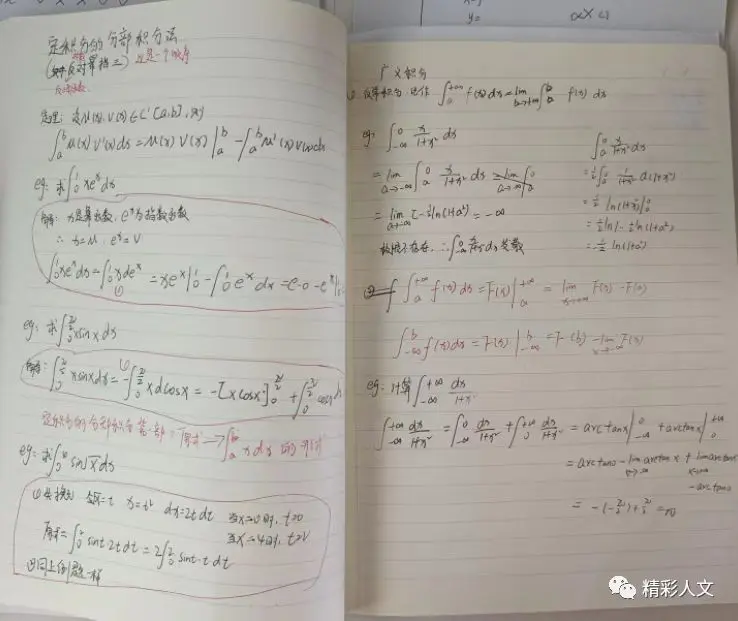 y= α×4
定积分的分部积分法
(反对幂指三) 这是一个顺序
定理: 设u(x), v(x)∈C'[a,b], 则
∫_a^b u(x)v'(x)dx = u(x)v(x)|_a^b - ∫_a^b u'(x)v(x)dx
eg: 求∫_0^1 xe^x dx
解: x是幂函数, e^x为指数函数
∴ x=u, e^x=v
∫_0^1 xe^x dx = ∫_0^1 x de^x = xe^x|_0^1 - ∫_0^1 e^x dx = e-0-e^x|
(1)
eg: 求∫_0^{π/2} x sin x dx
解: ∫_0^{π/2} x sin x dx = -∫_0^{π/2} x d cos x = -[x cos x]_0^{π/2} + ∫_0^{π/2} cos x
定积分的分部积分第一部: 原式→∫_a^b x dx 的形式
eg: 求∫ sin√x dx
① 先换元 令√x=t x=t² dx=2t dt 当x=0时, t=0
当x=4时, t=2
原式=∫_0^2 sin t·2t dt = 2∫_0^2 sin t·t dt
②同上例题一样
广义积分
∫_a^{+∞} f(x)dx = lim_{b→+∞} ∫_a^b f(x) dx
eg: ∫_{-∞}^0 x/(1+x²) dx
= lim_{a→-∞} ∫_a^0 x/(1+x²) dx = lim_{a→-∞} ∫_a^0
= lim_{a→-∞} [-½ln(1+a²)] = -∞
故极限不存在, ∴∫ x/(1+x²) dx 发散
∫_a^0 x/(1+x²) dx
= ½∫_a^0 1/(1+x²) d(1+x²)
= ½ ln(1+x²)|_a^0
= ½ln1 - ½ln(1+a²)
= -½ ln(1+a²)
② ∫_a^{+∞} f(x)dx = F(x)|_a^{+∞} = lim_{x→+∞} F(x) - F(a)
∫_{-∞}^b f(x)dx = F(x)|_{-∞}^b = F(b) - lim_{x→-∞} F(x)
eg: 计算∫_{-∞}^{+∞} dx/(1+x²)
∫_{-∞}^{+∞} dx/(1+x²) = ∫_{-∞}^0 dx/(1+x²) + ∫_0^{+∞} dx/(1+x²) = arctan x|_{-∞}^0 + arctan x|_0^{+∞}
= arctan0 - lim_{x→-∞} arctan x + lim_{x→+∞} arctan x
- arctan0
= -(-π/2) + π/2 = π
精彩人文